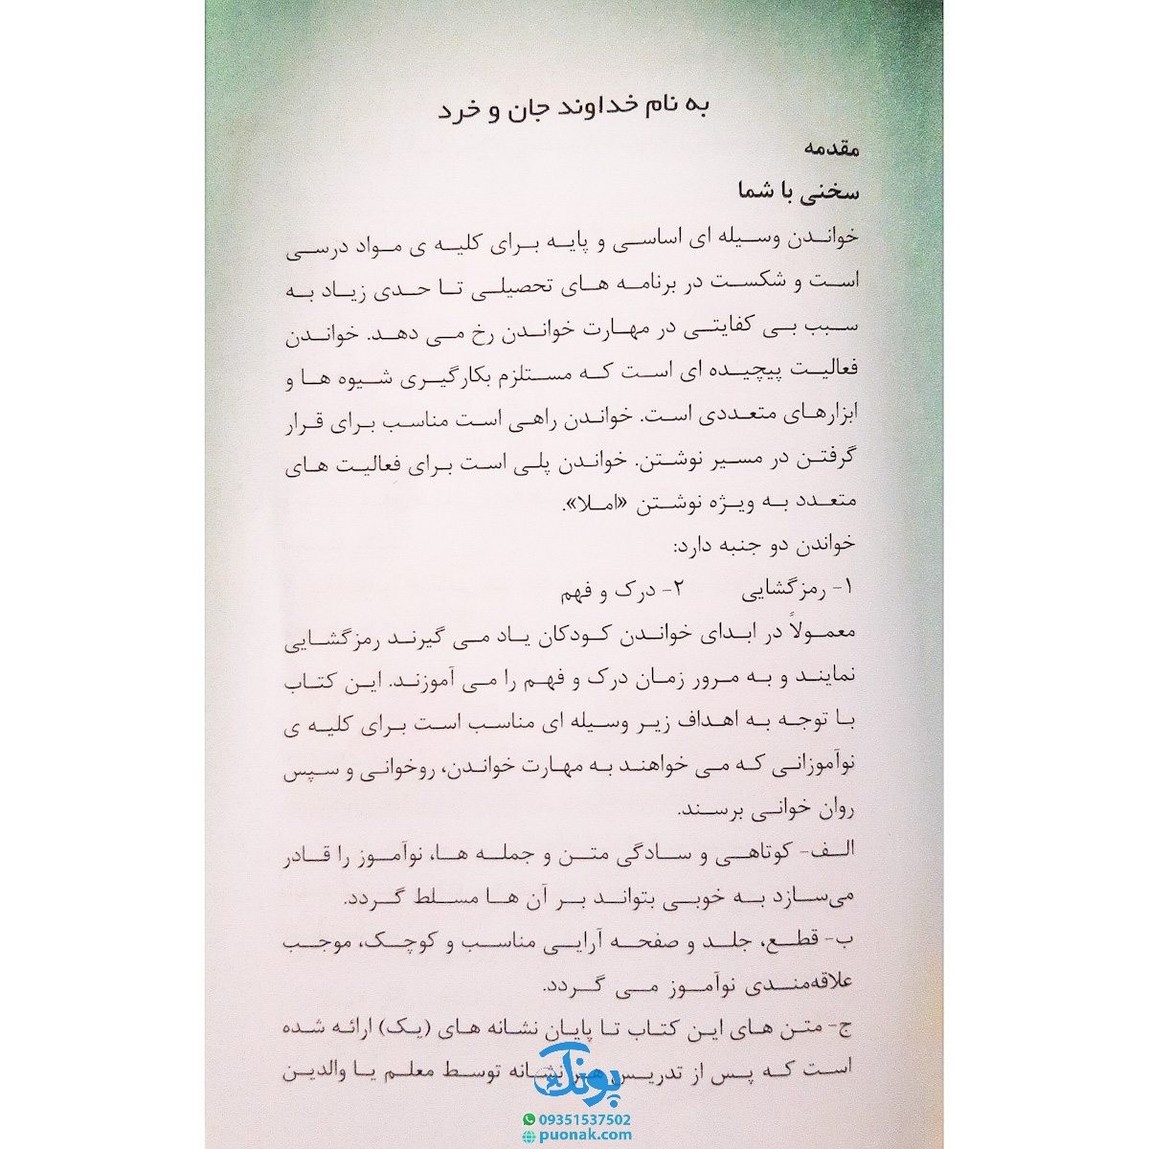 به نام خداوند جان و خرد
مقدمه
سخنی با شما
خواندن وسیله ای اساسی و پایه برای کلیه ی مواد درسی
است و شکست در برنامه های تحصیلی تا حدی زیاد به
سبب بی کفایتی در مهارت خواندن رخ می دهد. خواندن
فعالیت پیچیده ای است که مستلزم بکارگیری شیوه ها و
ابزارهای متعددی است. خواندن راهی است مناسب برای قرار
گرفتن در مسیر نوشتن. خواندن پلی است برای فعالیت های
متعدد به ویژه نوشتن «املا».
خواندن دو جنبه دارد:
۱- رمزگشایی ۲- درک و فهم
معمولاً در ابدای خواندن کودکان یاد می گیرند رمزگشایی
نمایند و به مرور زمان درک و فهم را می آموزند. این کتاب
با توجه به اهداف زیر وسیله ای مناسب است برای کلیه ی
نوآموزانی که می خواهند به مهارت خواندن، روخوانی و سپس
روان خوانی برسند.
الف- کوتاهی و سادگی متن و جمله ها، نوآموز را قادر
می‌سازد به خوبی بتواند بر آن ها مسلط گردد.
ب- قطع، جلد و صفحه آرایی مناسب و کوچک، موجب
علاقه‌مندی نوآموز می گردد.
ج- متن های این کتاب تا پایان نشانه های (یک) ارائه شده
است که پس از تدریس هر نشانه توسط معلم یا والدین
پونک
09351537502
puonak.com